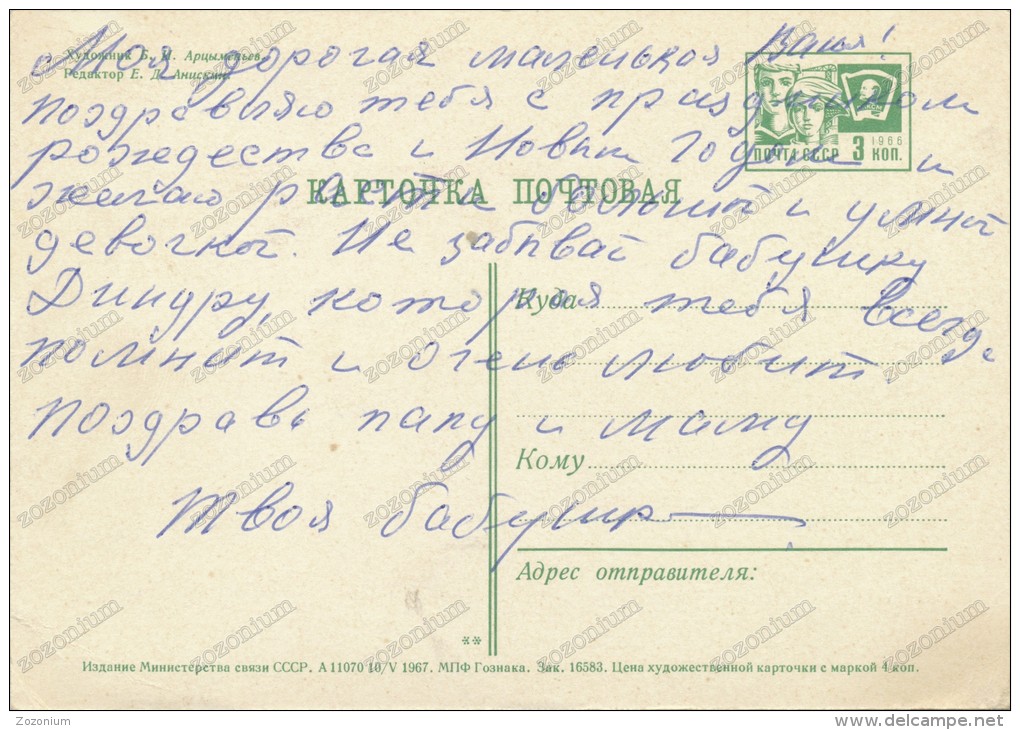 Художник Б. И. Арцыменьев
Редактор Е. Д. Анискин
Моя дорогая маленькая
поздравляю тебя с праздником
рождества и Новым Годом и
желаю расти большой и умной
девочкой. Не забывай бабушку
Динару, которая тебя всегда
помнит и очень любит.
Поздравь папу и маму
Твоя бабушка
ПОЧТА СССР 3 КОП.
1966
КАРТОЧКА ПОЧТОВАЯ
Куда
Кому
Адрес отправителя:
**
Издание Министерства связи СССР. А 11070 10/V 1967. МПФ Гознака. Зак. 16583. Цена художественной карточки с маркой 4 коп.
zozonium
Zozonium
delcampe.net